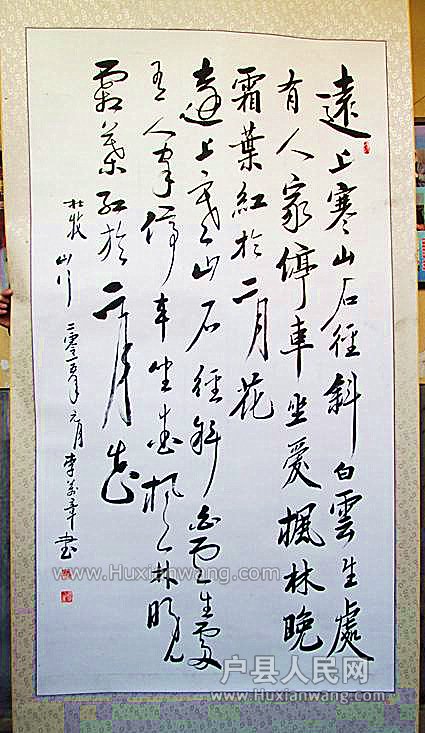 遠上寒山石徑斜白雲生處
有人家停車坐愛楓林晚
霜葉紅於二月花
遠上寒山石徑斜白雲生處
有人家停車坐愛楓林晚
霜葉紅於二月花
杜牧 山行 元月 李 章書
www.Huxianwang.com
户县人民网
www.Huxianwang.com